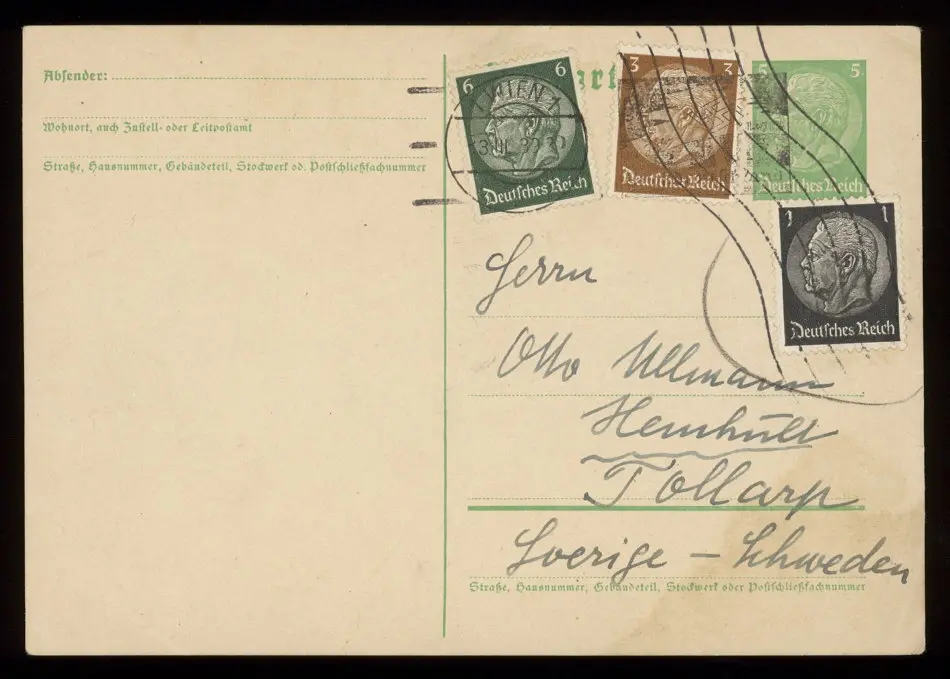 Absender:
Wohnort, auch Zustell- oder Leitpostamt
Straße, Hausnummer, Gebäudeteil, Stockwerk od. Postschließfachnummer
6 6
Deutsches Reich
WIEN
3 3
Deutsches Reich
5 5
Deutsches Reich
1 1
Deutsches Reich
Herrn
Otto Ullmann
Hemhult
Tollarp
Sverige – Schweden
Straße, Hausnummer, Gebäudeteil, Stockwerk oder Postschließfachnummer